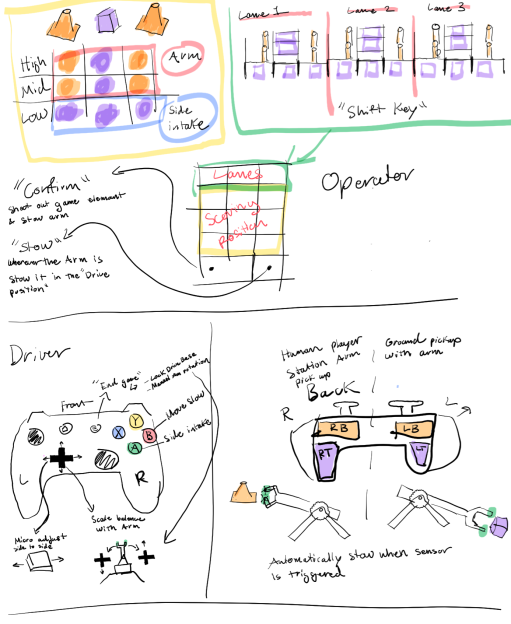 High
Mid
Low
Arm
Side
intake
Lane 1
Lane 2
Lane 3
"Shift Key"
Lanes
Scoring
Position
Operator
"Confirm"
Shoot out game element
& stow arm
"Stow"
wherever the Arm is
stow it in the "Drive
position"
Driver
Front
"End game"
- Lock Drive Base
- Manual Arm rotation
Y
X
B
A
Move slow
Side intake
L
R
Micro adjust
side to side
Scale balance
with Arm
Human player
Station Arm
pick up
Ground pickup
with arm
Back
R
L
RB
LB
RT
LT
Automatically stow when sensor
is triggered